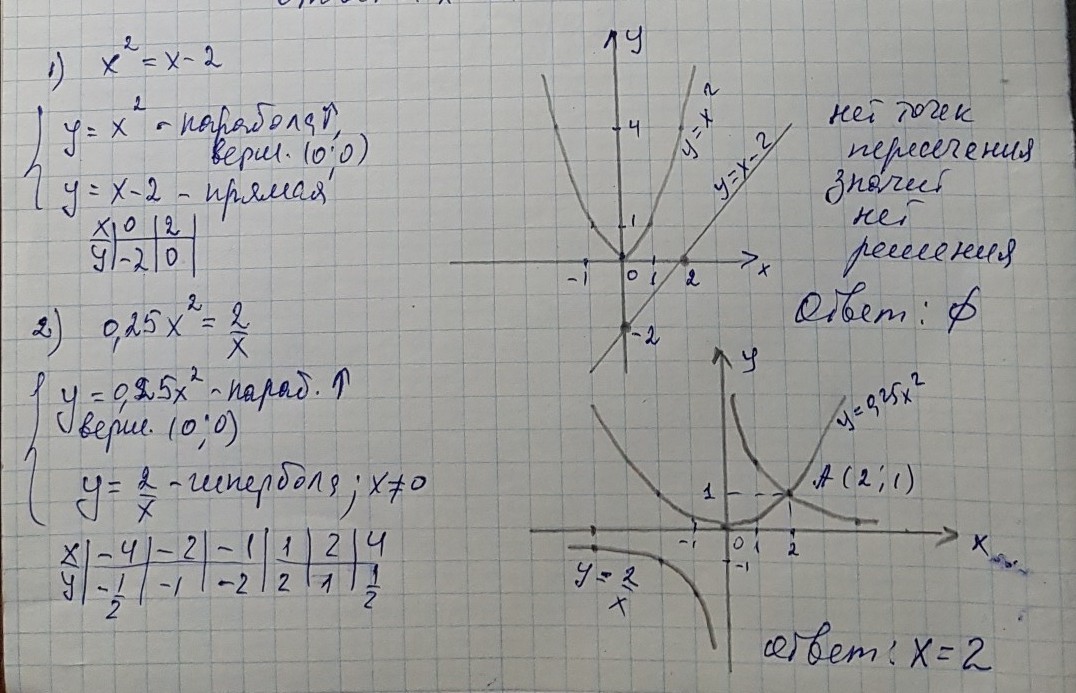 1) x² = x - 2
{ y = x² - парабола↑,
верш. (0;0)
y = x-2 - прямая
x | 0 | 2 |
y | -2 | 0 |
y
4
1
-1 0 1 2 x
-2
y=x²
y=x-2
нет точек
пересечения
значит
нет
решения
Ответ: ∅
2) 0,25x² = 2/x
{ y = 0,25x² - параб. ↑
верш. (0;0)
y = 2/x - гипербола; x≠0
x | -4 | -2 | -1 | 1 | 2 | 4
y | -1/2 | -1 | -2 | 2 | 1 | 1/2
y
y=0,25x²
1
A (2;1)
-1 0 1 2 x
-1
y = 2/x
Ответ: x = 2